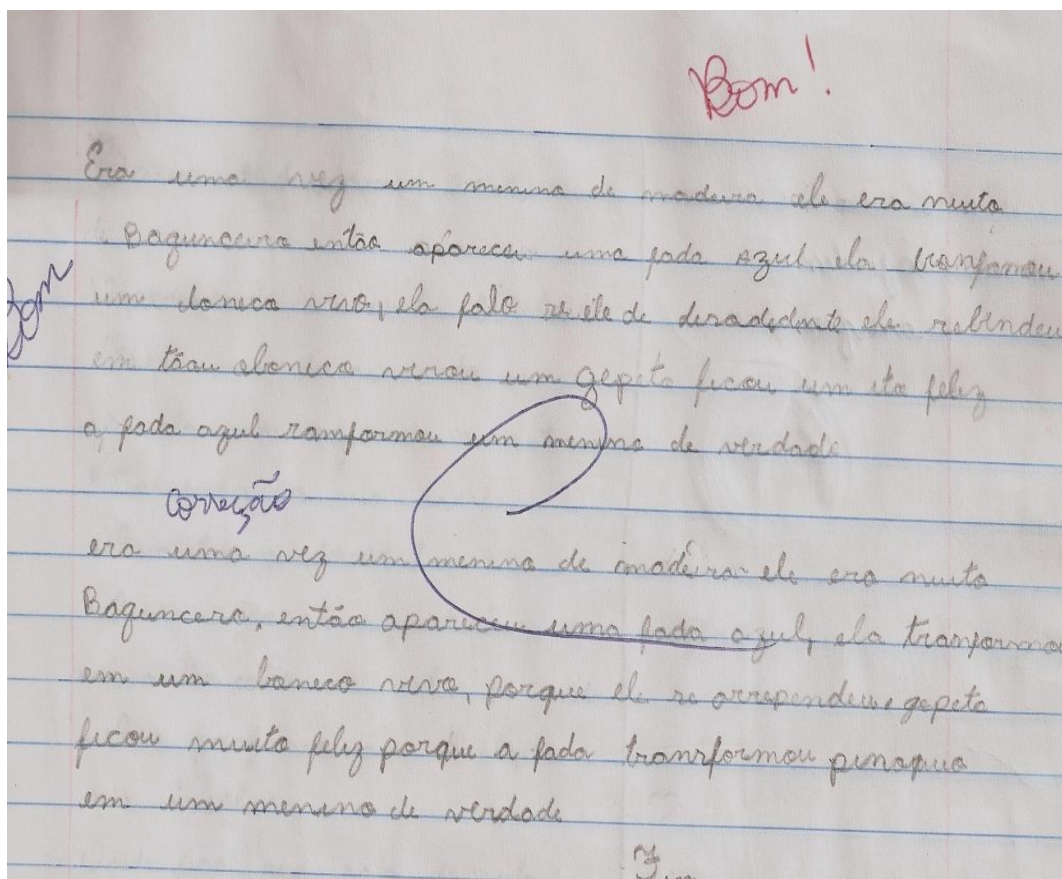 Bom!
Era uma vez um menino de madeira ele era muito
Bagunceiro então apareceu uma fada azul ela tranfomou
Bom
um doneco vivo, ela falo se ele de ele
em tãou aboneco virou um gepeto ficou um ito feliz
a fada azul ramformou um menino de verdade
correção
era uma vez um menino de madeira ele era muito
Baguncero, então apareceu uma fada azul, ela tranformo
em um boneco vivo, porque ele se arrependeu, gepeto
ficou muito feliz porque a fada transformou
em um menino de verdade
Fim